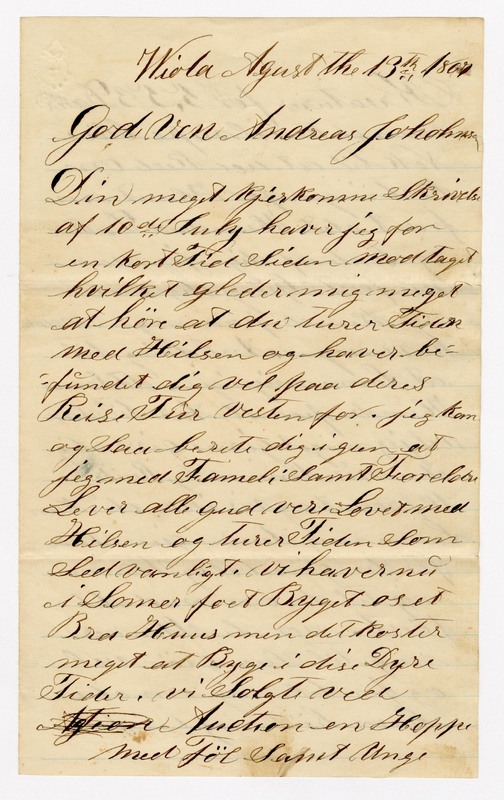 Wiola Agust the 13th 1867
God Ven Andreas Joholmsen
Din meget kjerkomne Skrivelse
af 10de July haver jeg for
en kort Tid Siden modtaget
hvilket gleder mig meget
at höre at du turer Tiden
med Hilsen og haver be=
=fundet dig vel paa deres
Reise Tur Vesten for. jeg kan
og Saa berete dig igen at
jeg med Fameli Samt Foreldre
Lever alle gud vere Lovet med
Hilsen og turer Tiden Som
Sedvanligt. vi haver nu
i Somer foet Byget os et
Bra Huus men det koster
meget at Byge i dise Dyre
Tider. vi Solgte ved
Auction en Hoppe
med Föl Samt Unge